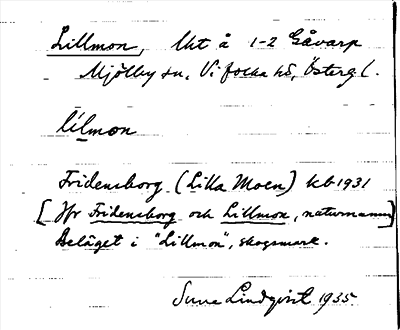 Lillmon, lht å 1-2 Gåvarp
Mjölby sn, Vifolka hd, Österg l.
lílmon
Fridensborg (Lilla Moen) kb 1931
[Jfr Fridensborg och Lillmon, naturnamn]
Beläget i "Lillmon", skogsmark.
Sune Lindqvist 1935.